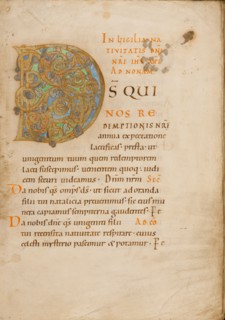 IN VIGILIA NA
TIVITATIS DNI
NRI IHV XPI
AD NONAM
DS QUI
NOS RE
DEMPTIONIS NRI
annua expectatione
laetificas; presta ut
unigenitum tuum quem redemptorem
laeti suscipimus. uenientem quoq; iudi
cem securi uideamus. Dnm nrm
Da nobis qs omps ds. ut sicut adoranda
filii tui natalicia preuenimus. sic eius mu
nera capiamus sempiterna gaudentes. P
Da nobis dne qs unigeniti AD CO
filii tui nativitate respirare. cuius
celesti mysterio pascimur et potamur. P